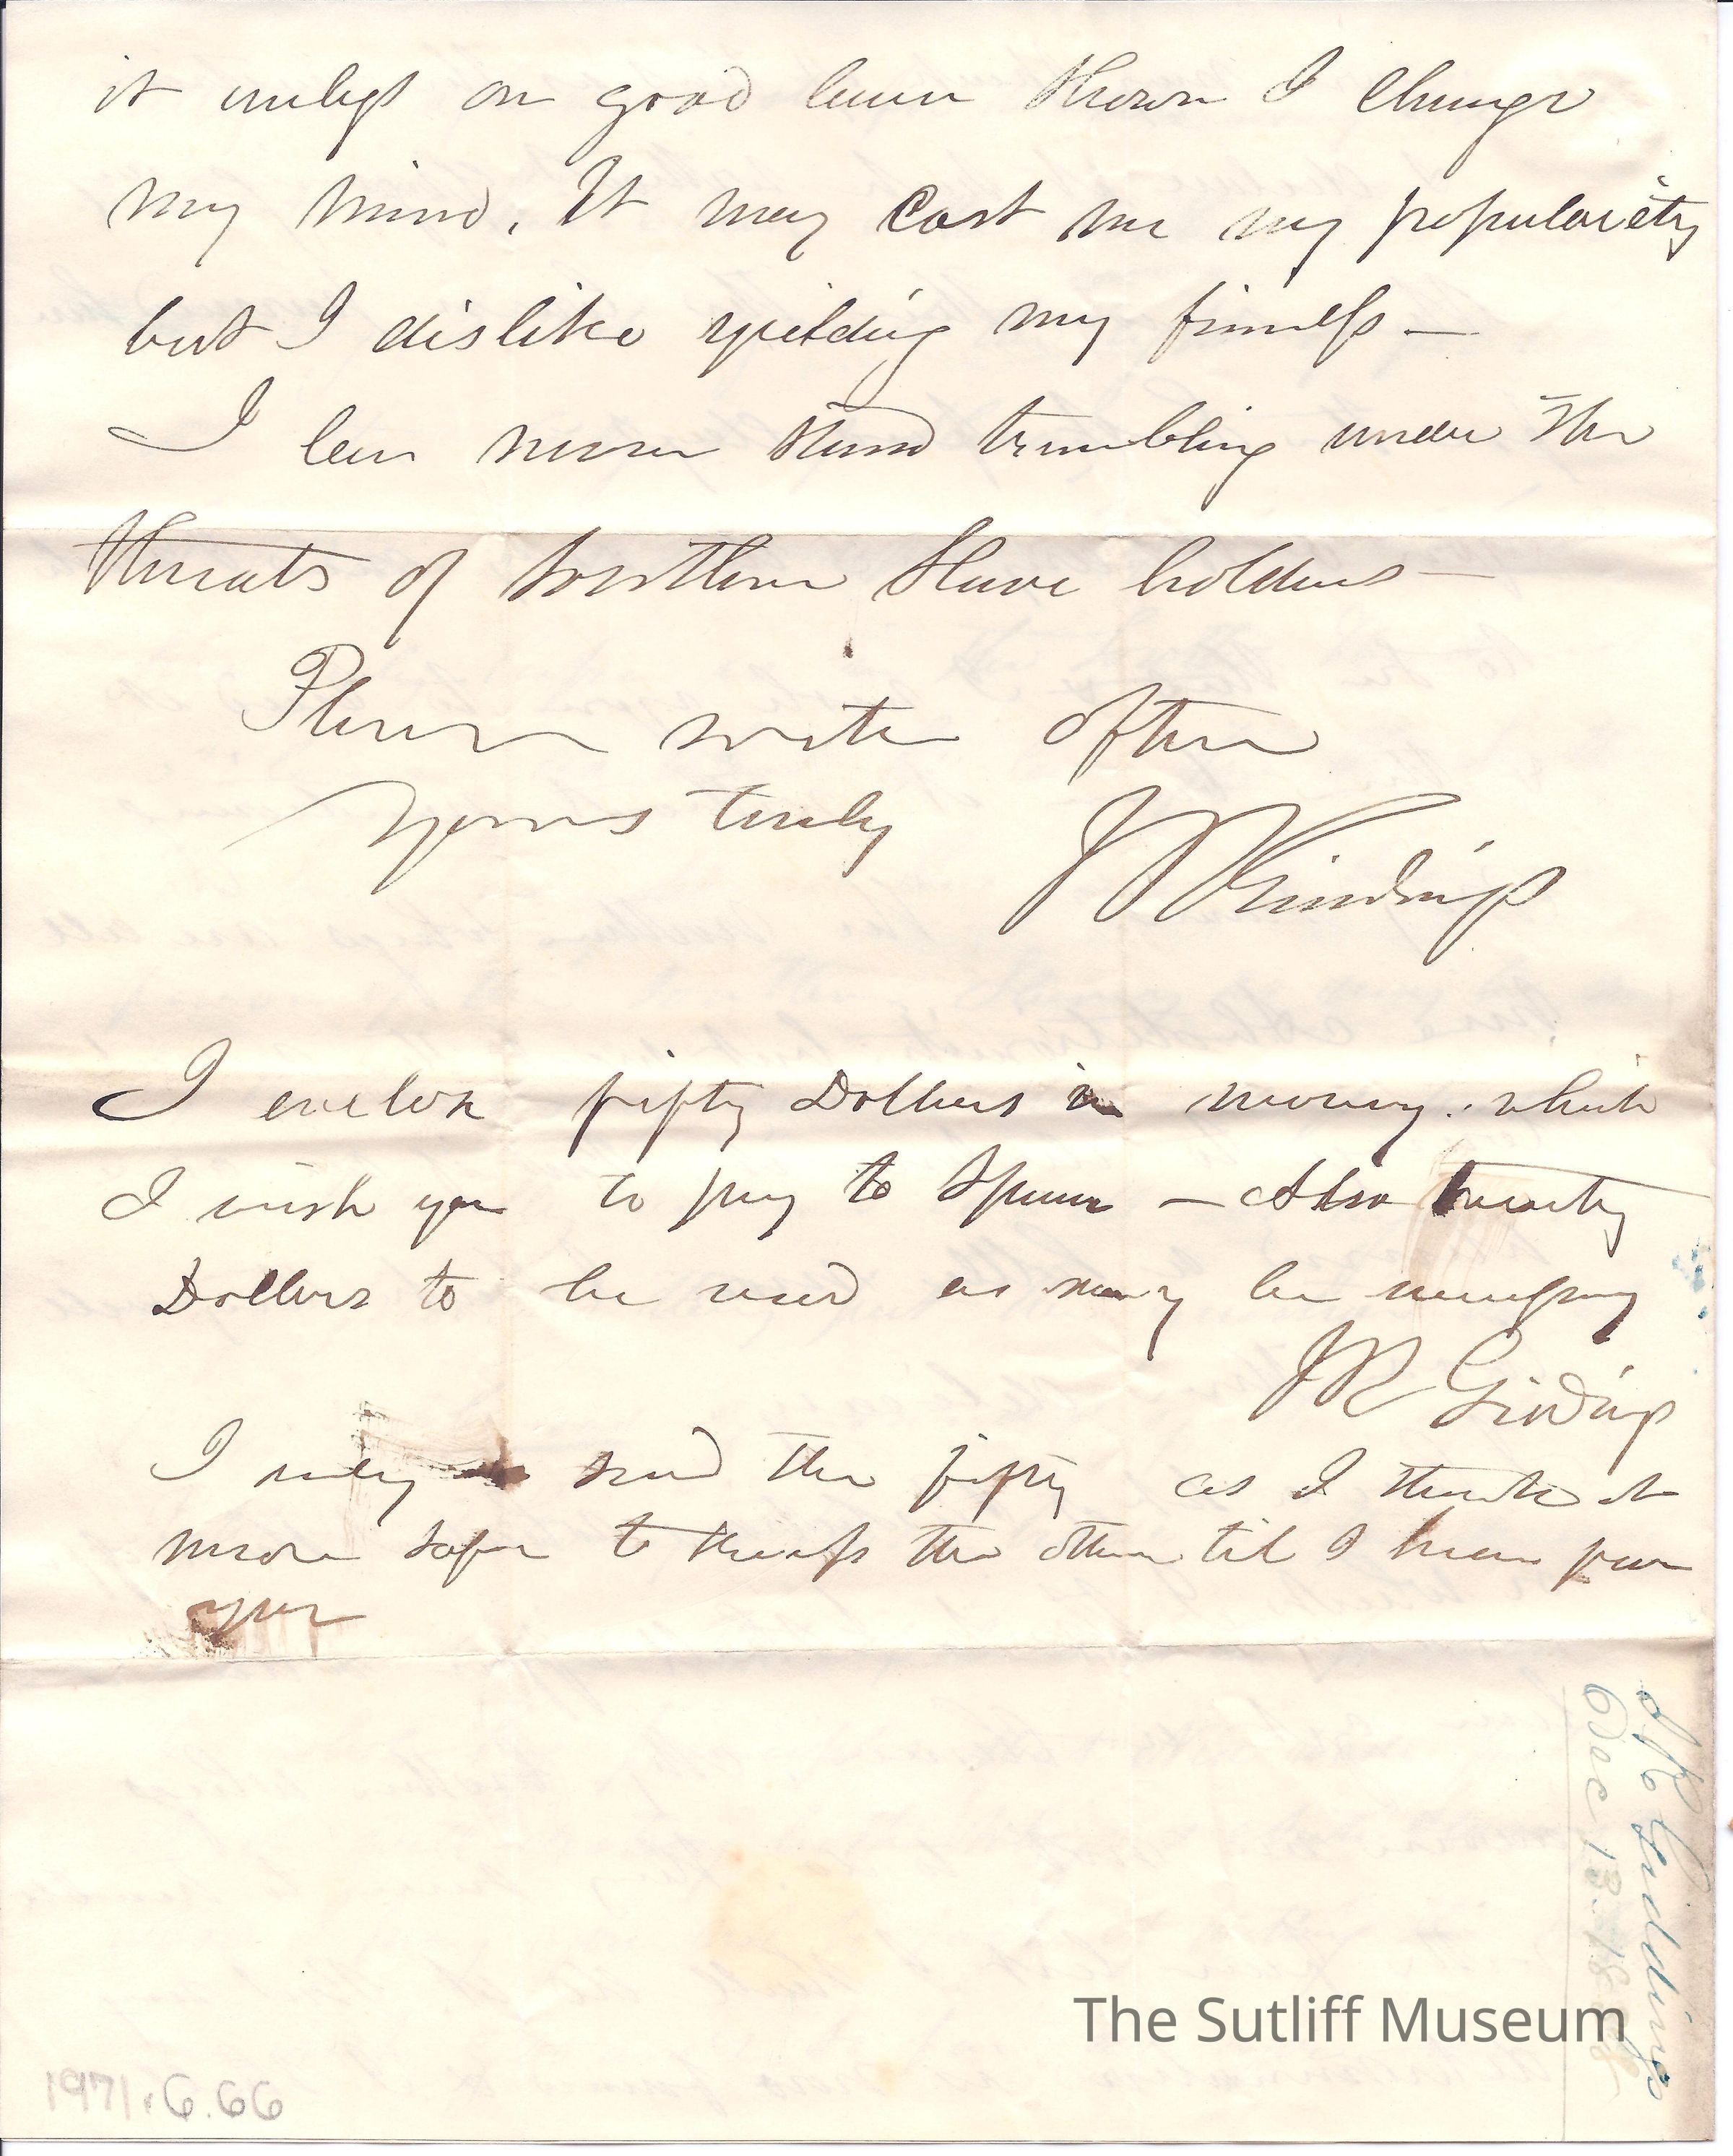 it unless on good cause shown I change
my mind. It may cost me my populariety
but I dislike yielding my firmness —
I can never stand trembling under the
threats of Southern Slave holders —
Please write often
Yours truly J R Giddings
I enclose fifty Dollars in money. which
I wish you to pay to Spear — Also twenty
Dollars to be used as may be necessary
J R Giddings
I only send the fifty as I think it
more safe to the other til I hear from
you
J R Giddings
Dec 13. 18
The Sutliff Museum
1971.6.66